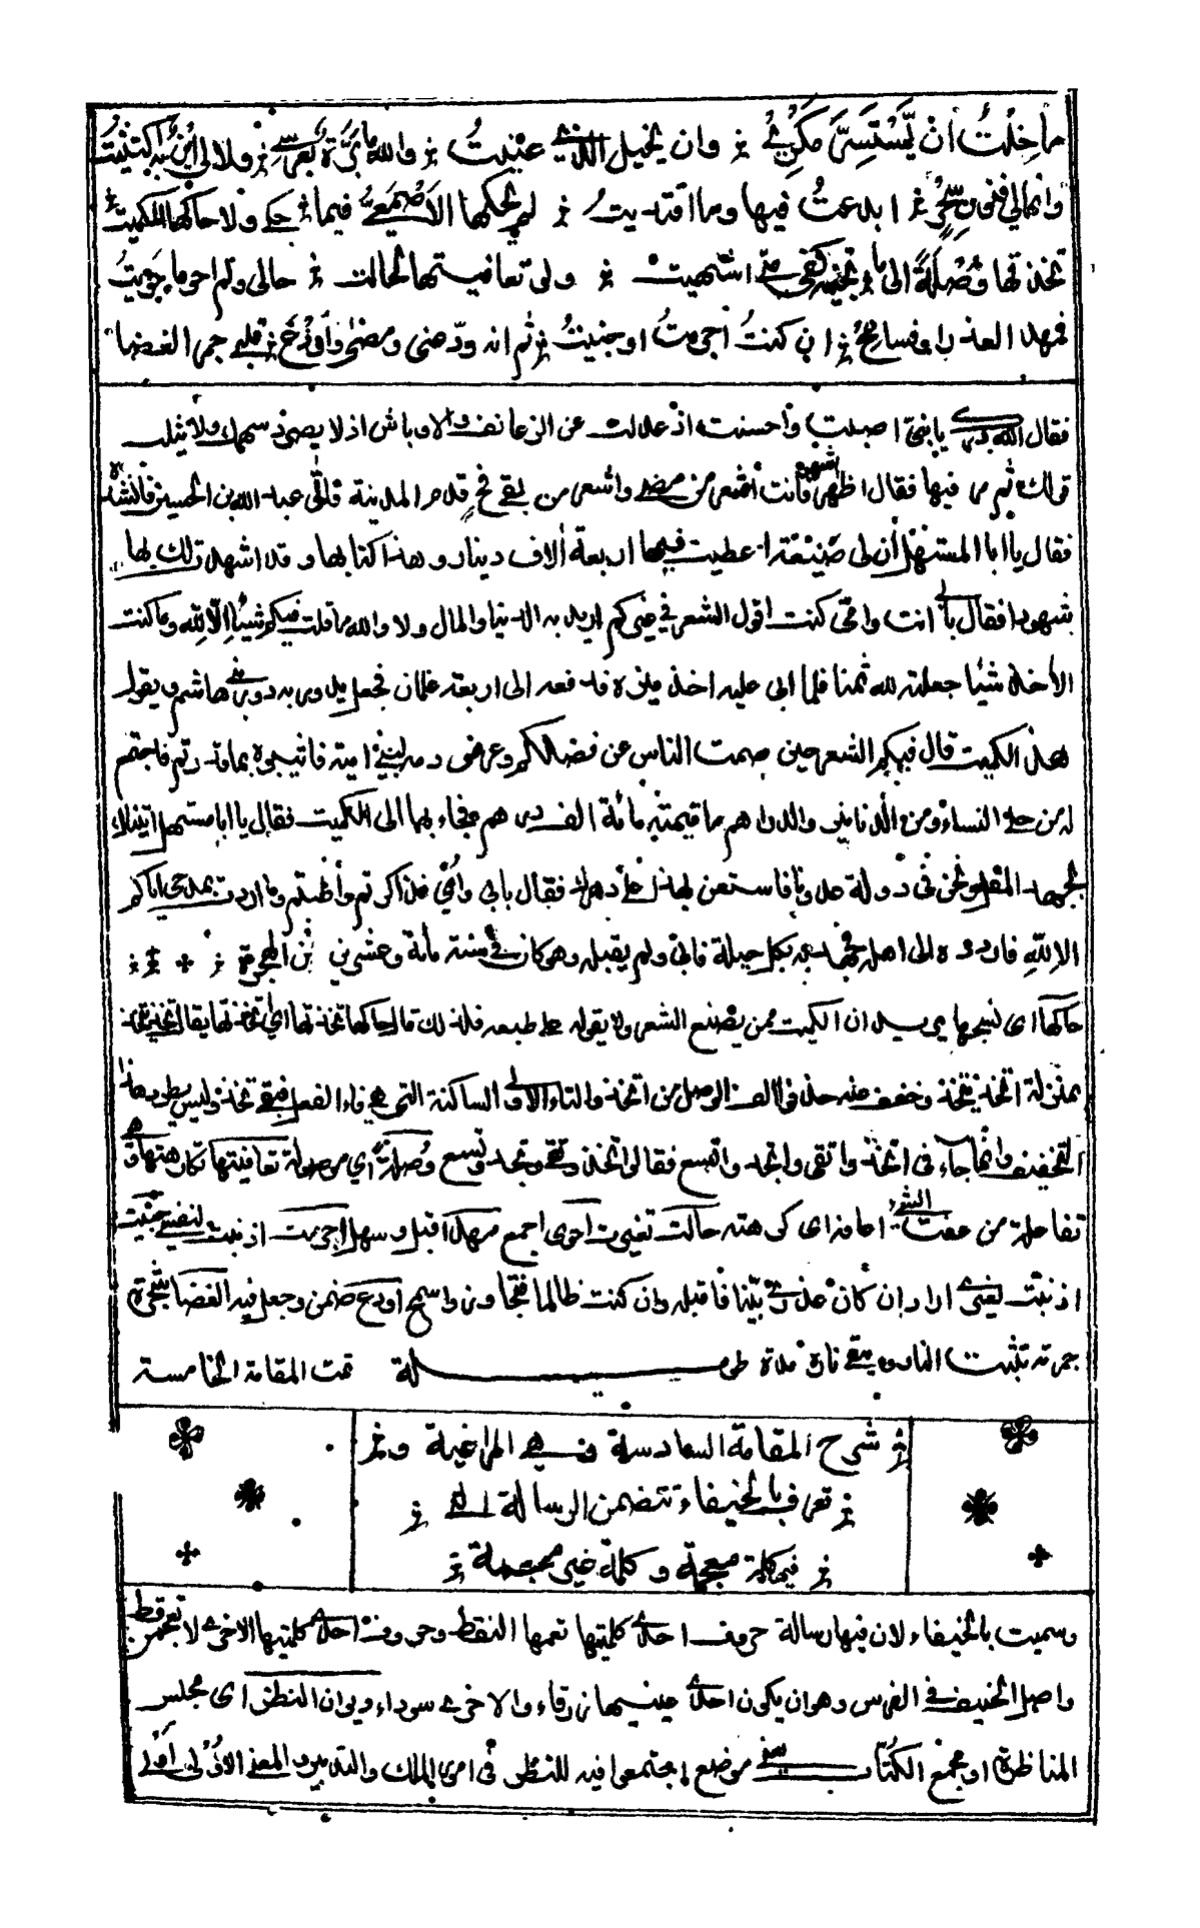 ما خِلْتُ أنْ يَّسْتَسِرَّ مَكرِيْ وان يخيل الذي عنيتُ والله ما بَرَّةُ بعِرسي ولا لي ابْنٌ به اكتنيْتُ
وانما لي فنون سحرٍ ابدعتُ فيها وما اقتديتُ لم يحكها الاَصْمَعِيُّ فيما حكى ولا حاكها الكميتُ
تخذتها وُصْلَةً الى ما تجنيه كفي متى اشتهيت ولو تعافيتها لحالت حالي ولم احو ما حويتُ
فمهد العذر او فسامحْ ان كنتُ أجرمتُ او جنيتُ ثم انه ودّعني ومضى وأودَعَ قلبي جمر الغضا
فقال الفرزدق يا ابن اخي اصبت واحسنت اذ عدلت عن الزعانف والاوباش اذ لا يصرد سهمك ولا
قولك ثم مر فيها فقال اظهر فانت اشعر من مضى واشعر من بقى فح قدم المدينة فاتى عبد الله بن الحسين فانشده
فقال يا ابا المستهل أن لي ضيعة اعطيت فيها اربعة آلاف دينار وهذا كتابها وقد اشهدت لك بها
شهودا فقال بابي انت وامي كنت اقول الشعر في غيركم اريد به الدنيا والمال ولا والله ما قلت فيكم شيئا الّا لِلّه وما كنت
لأخذ شيئا جعلته لله ثمنا فلما ابى عليه اخذ فدفعه الى اربعة غلمان فجعل يدور به دور بني هاشم ويقول
هذا الكميت قال فيكم الشعر حين صمت الناس عن فضلكم وعرض دمه لبني امية فاثيبوه بما قدرتم فاجتمع
له من حلي النساء ومن الدنانير والدراهم ما قيمته مائة الف درهم فجاء بها الى الكميت فقال يا ابا مستهل اتيناك
بجهد المقل ونحن في دولة عدونا فاستعن بهذا على دهرك فقال بابي وأمي قد اكثرتم وأطبتم وما اردت بمدحي اياكم
الا للّه فاردده الى اهله فجهد به بكل حيلة فابى ولم يقبله وهو كان في سنة مائة وعشرين من الهجرة
حاكها اي نسجها يريد ان الكميت ممن يصنع الشعر ولا يقوله على طبعه فلذلك قال حاكها تخذتها اي اتخذتها يقال تخذ يتخذ
بمنزلة اتخذ يتخذ وخفف منه حذفوا الف الوصل من اتخذ والتاء الاولى الساكنة التي هي فاء الفعل فبقي تخذ وليس يطرد هذا
التخفيف وانما جاء في اتخذ واتقى واتجه واتسع فقالوا تخذ وتقى وتجه وتسع وُصلة اي موصولة تعافيتها تكارهتها وهي
تفاعلة من عفت الشيء اعافه اي كرهته حالت تغيرت احوى اجمع مهد اقبل وسهل اجرمت اذنبت لنفسي جنيت
اذنبت لغيري اراد ان كان عذري بيّنا فاقبله وان كنت ظالما فتجاوز واسمح اودع ضمن وجعل فيه الغضا شجرة
جمرته تثبت النار ويبقى ناره مدة طويلة تمت المقامة الخامسة
شرح المقامة السادسة وهي المراغية و
تعرف بالخيفاء تتضمن الرسالة التي
فيها كلمة معجمة وكلمة غير معجمة
وسميت بالخيفاء لان فيها رسالة حروف احدى كلمتيها تعمها النقط وحروف احدى كلمتيها الاخرى لا تعجمن قط
واصل الخيف في الفرس وهو ان يكون احدى عينيها زرقاء والاخرى سوداء ديوان النظر اي مجلس
المناظرة او مجمع الكُتّاب يعني موضع اجتمعوا فيه للنظر في امر الملك والتدبير والمعنى الاوّل اَولى